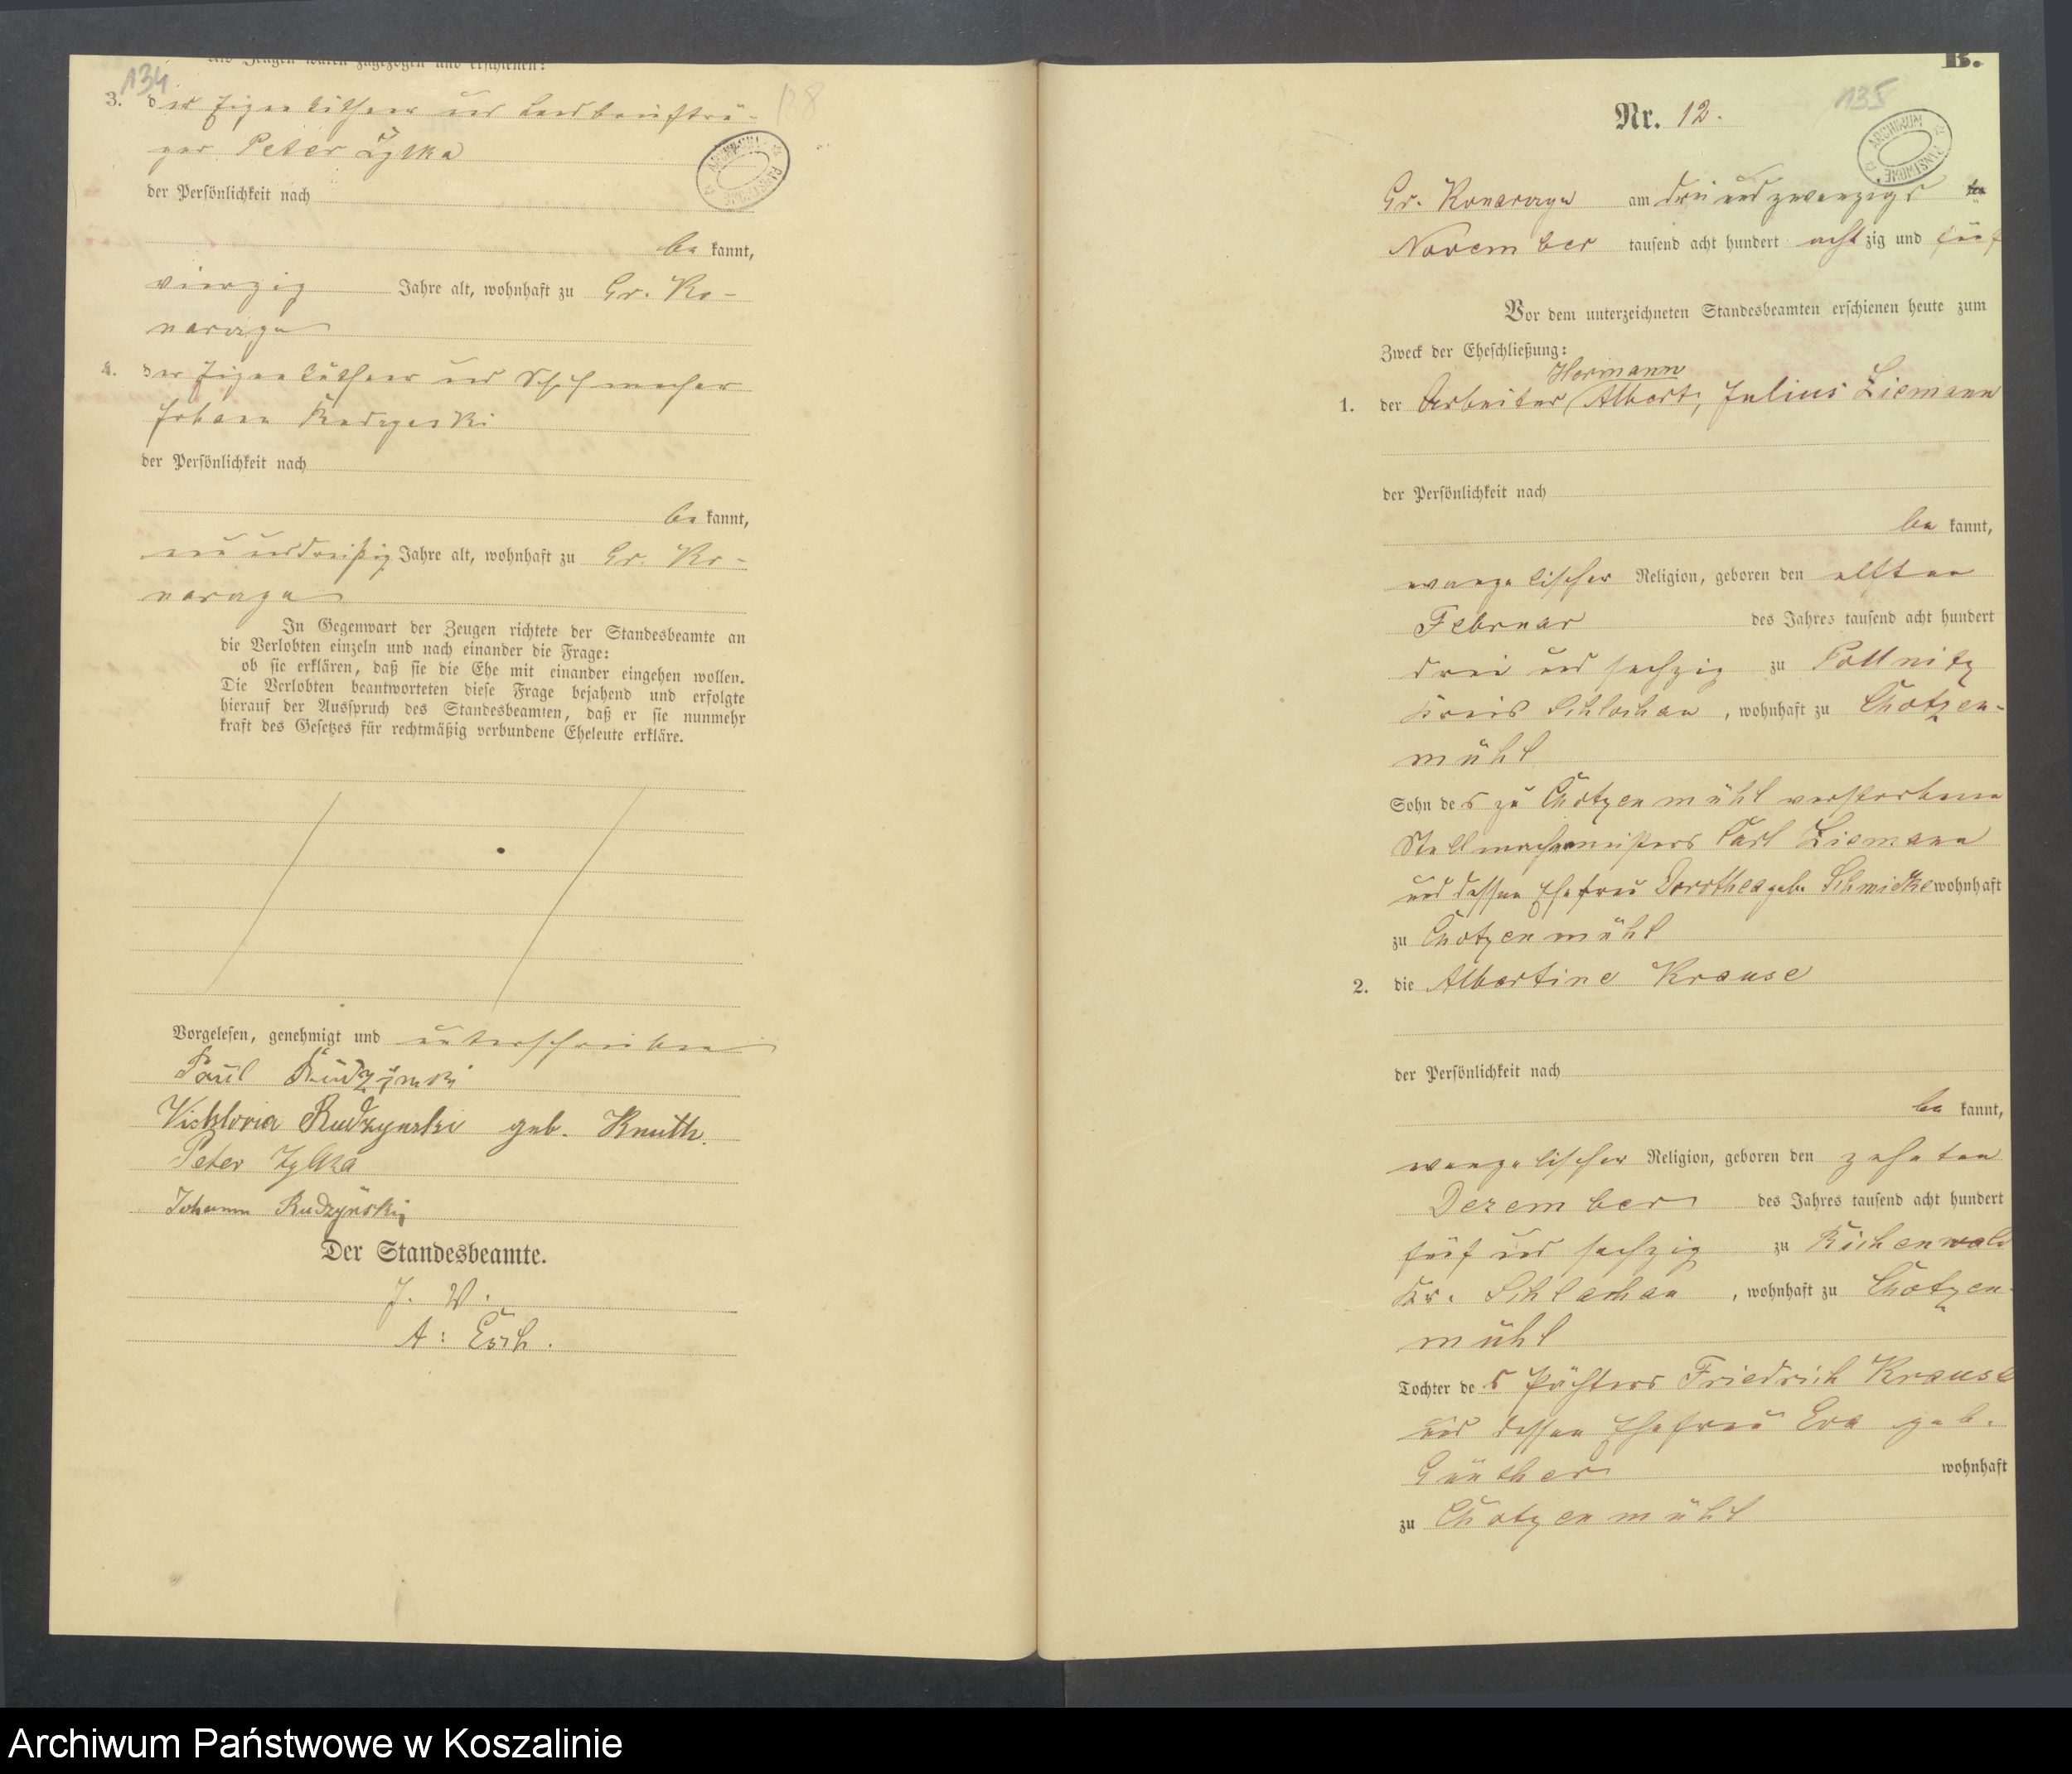 als Zeugen waren zugezogen und erschienen:
134
3. der Eigenkäthner und Landbriefträ-
ger Peter Zylka
128
ARCHIWUM PAŃSTWOWE
der Persönlichkeit nach
be kannt,
vierzig Jahre alt, wohnhaft zu Gr. Ko-
narczyn
4. der Eigenkäthner und Schuhmacher
Johann Rudzynski
der Persönlichkeit nach
be kannt,
unddreißig Jahre alt, wohnhaft zu Gr. Ko-
narczyn
In Gegenwart der Zeugen richtete der Standesbeamte an
die Verlobten einzeln und nach einander die Frage:
ob sie erklären, daß sie die Ehe mit einander eingehen wollen.
Die Verlobten beantworteten diese Frage bejahend und erfolgte
hierauf der Ausspruch des Standesbeamten, daß er sie nunmehr
kraft des Gesetzes für rechtmäßig verbundene Eheleute erkläre.
Vorgelesen, genehmigt und unterschrieben
Paul Rudzynski
Vicktoria Rudzynski geb. Knuth.
Peter Zylka
Johann Rudzynski
Der Standesbeamte.
J. V.
A: Esch.
B.
135
Nr. 12.
ARCHIWUM PAŃSTWOWE
Gr. Konarczyn am drei und zwanzigs ten
November tausend acht hundert achtzig und fünf
Vor dem unterzeichneten Standesbeamten erschienen heute zum
Zweck der Eheschließung:
Hermann
1. der Arbeiter, Albert, Julius Ziemann
der Persönlichkeit nach
be kannt,
evangelischer Religion, geboren den elften
Februar des Jahres tausend acht hundert
drei und sechzig zu Pollnitz
Kreis Schlochau, wohnhaft zu Chotzen-
mühl
Sohn des zu Chotzenmühl verstorbenen
Stellmachermeisters Carl Ziemann
und dessen Ehefrau Dorothea geb. Schmidke wohnhaft
zu Chotzenmühl
2. die Albertine Krause
der Persönlichkeit nach
be kannt,
evangelischer Religion, geboren den zehnten
Dezember des Jahres tausend acht hundert
fünf und sechzig zu Eichenwald
Kr. Schlochau, wohnhaft zu Chotzen-
mühl
Tochter des Pächters Friedrich Krause
und dessen Ehefrau Eva geb.
Günther wohnhaft
zu Chotzenmühl
Archiwum Państwowe w Koszalinie